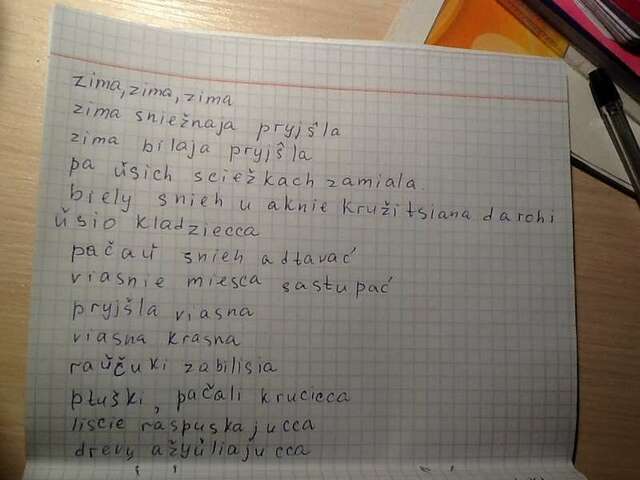 zima, zima, zima
zima sniežnaja pryjŝla
zima bilaja pryjŝla
pa ŭsich sciežkach zamiala.
biely snieh u aknie kružitsiana darohi
ŭsio kladziecca
pačaŭ snieh adtavać
viasnie miesca sastupać
pryjšla viasna
viasna krasna
raŭčuki zabilisia
ptuški, pačali krucicca
liscie raspuskajucca
drevy ažyŭliajucca